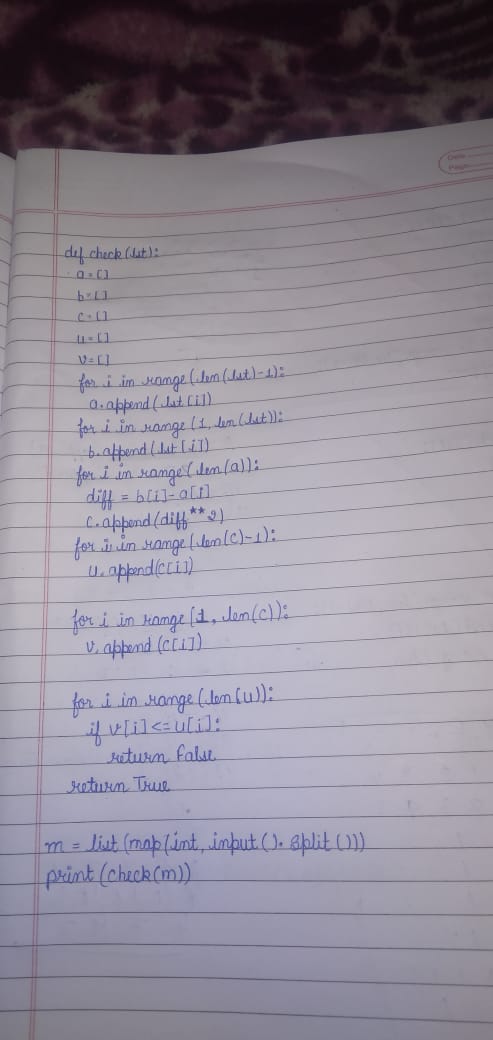 Date
Page
def check(lst):
a = []
b = []
c = []
u = []
v = []
for i in range(len(lst)-1):
a.append(lst[i])
for i in range(1, len(lst)):
b.append(lst[i])
for i in range(len(a)):
diff = b[i]-a[i]
c.append(diff**2)
for i in range(len(c)-1):
u.append(c[i])
for i in range(1, len(c)):
v.append(c[i])
for i in range(len(u)):
if v[i]<=u[i]:
return False
return True
m = list(map(int, input().split()))
print(check(m))